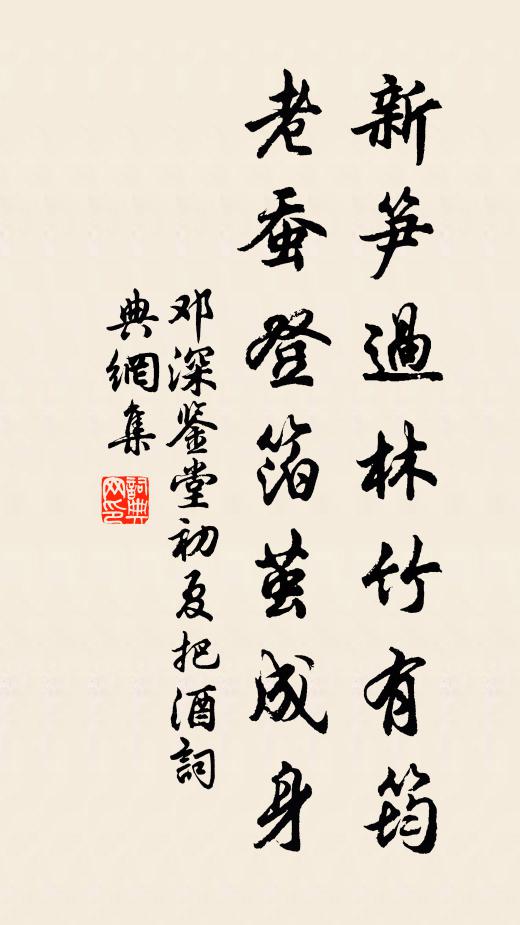 新笋過林竹有筠
老蚕登箔茧成身
邓深鉴堂初夏把酒詞
典網集
詞典网印